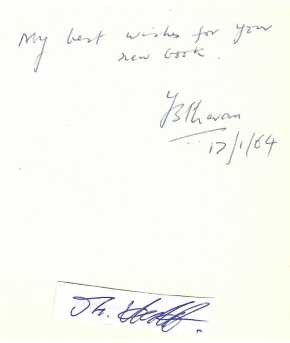 My best wishes for your
new book.
YBChavan
17/1/64